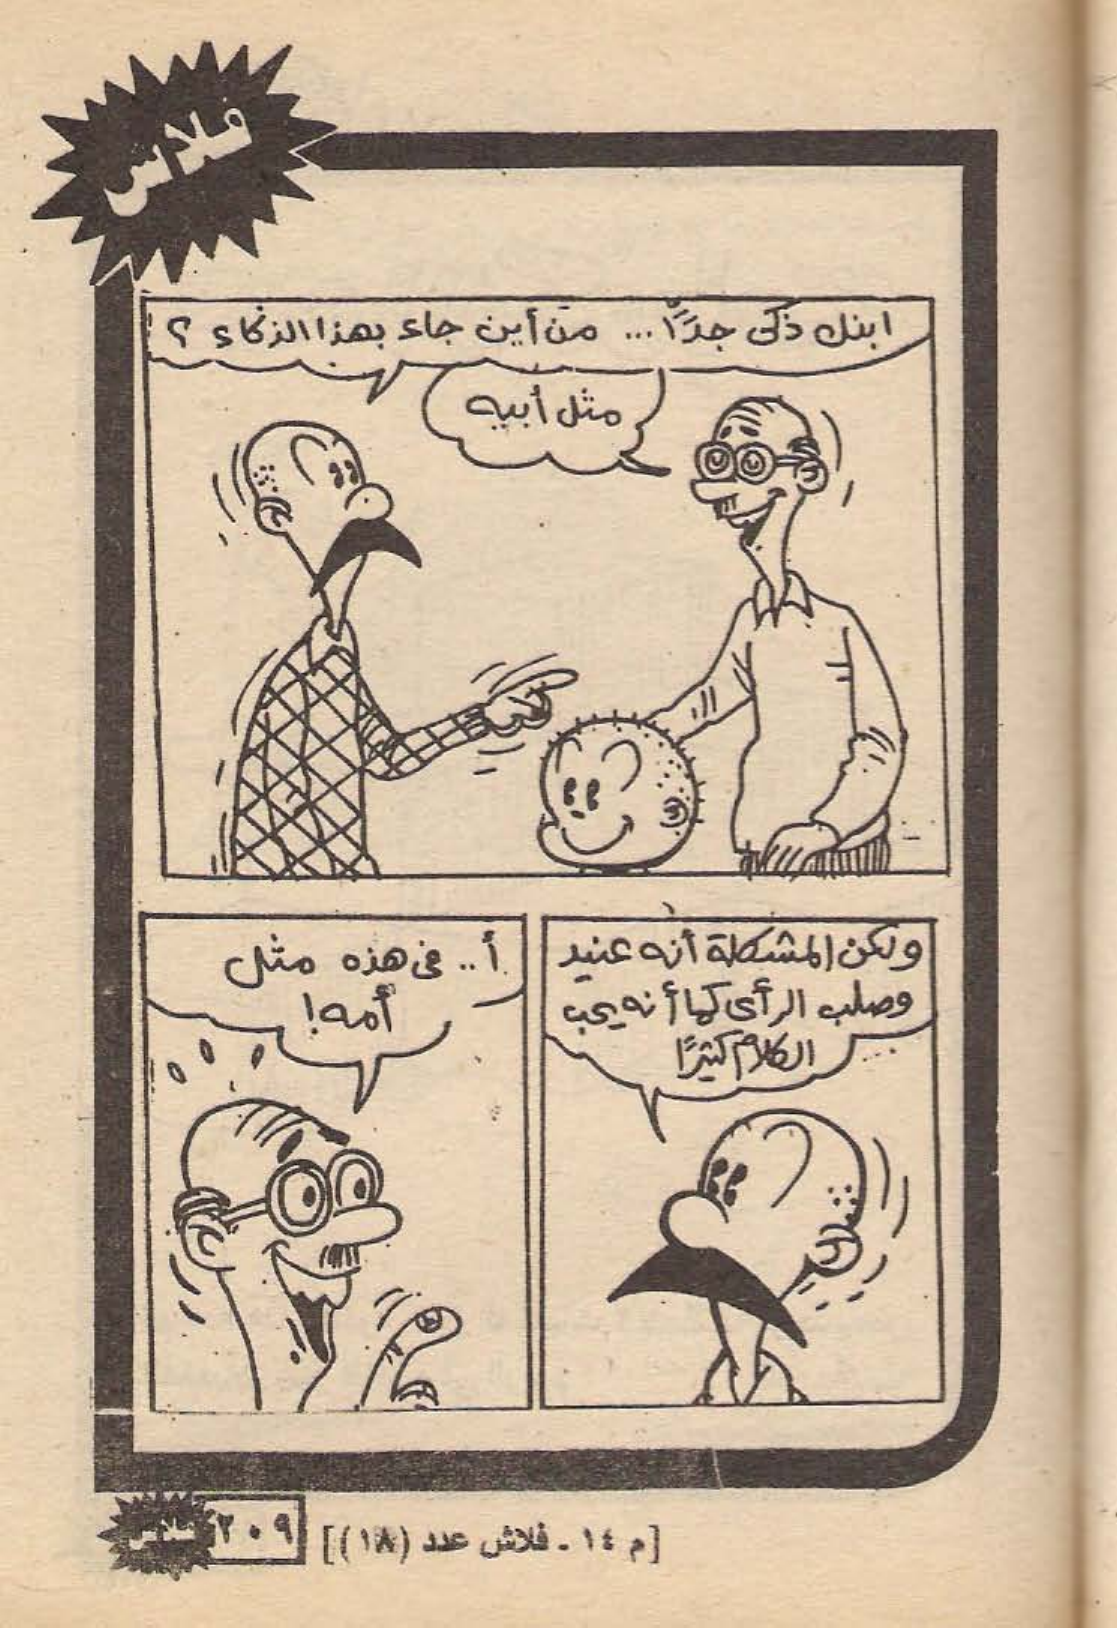 فلاش
ابنك ذكى جدًا... من أين جاء بهذا الذكاء ؟
مثل أبيه
ولكن المشكلة أنه عنيد
وصلب الرأى كما أنه يحب
الكلام كثيرًا ...
أ.. فى هذه مثل
أمه!
[م ١٤ - فلاش عدد (١٨)]
٢٠٩
فلاش